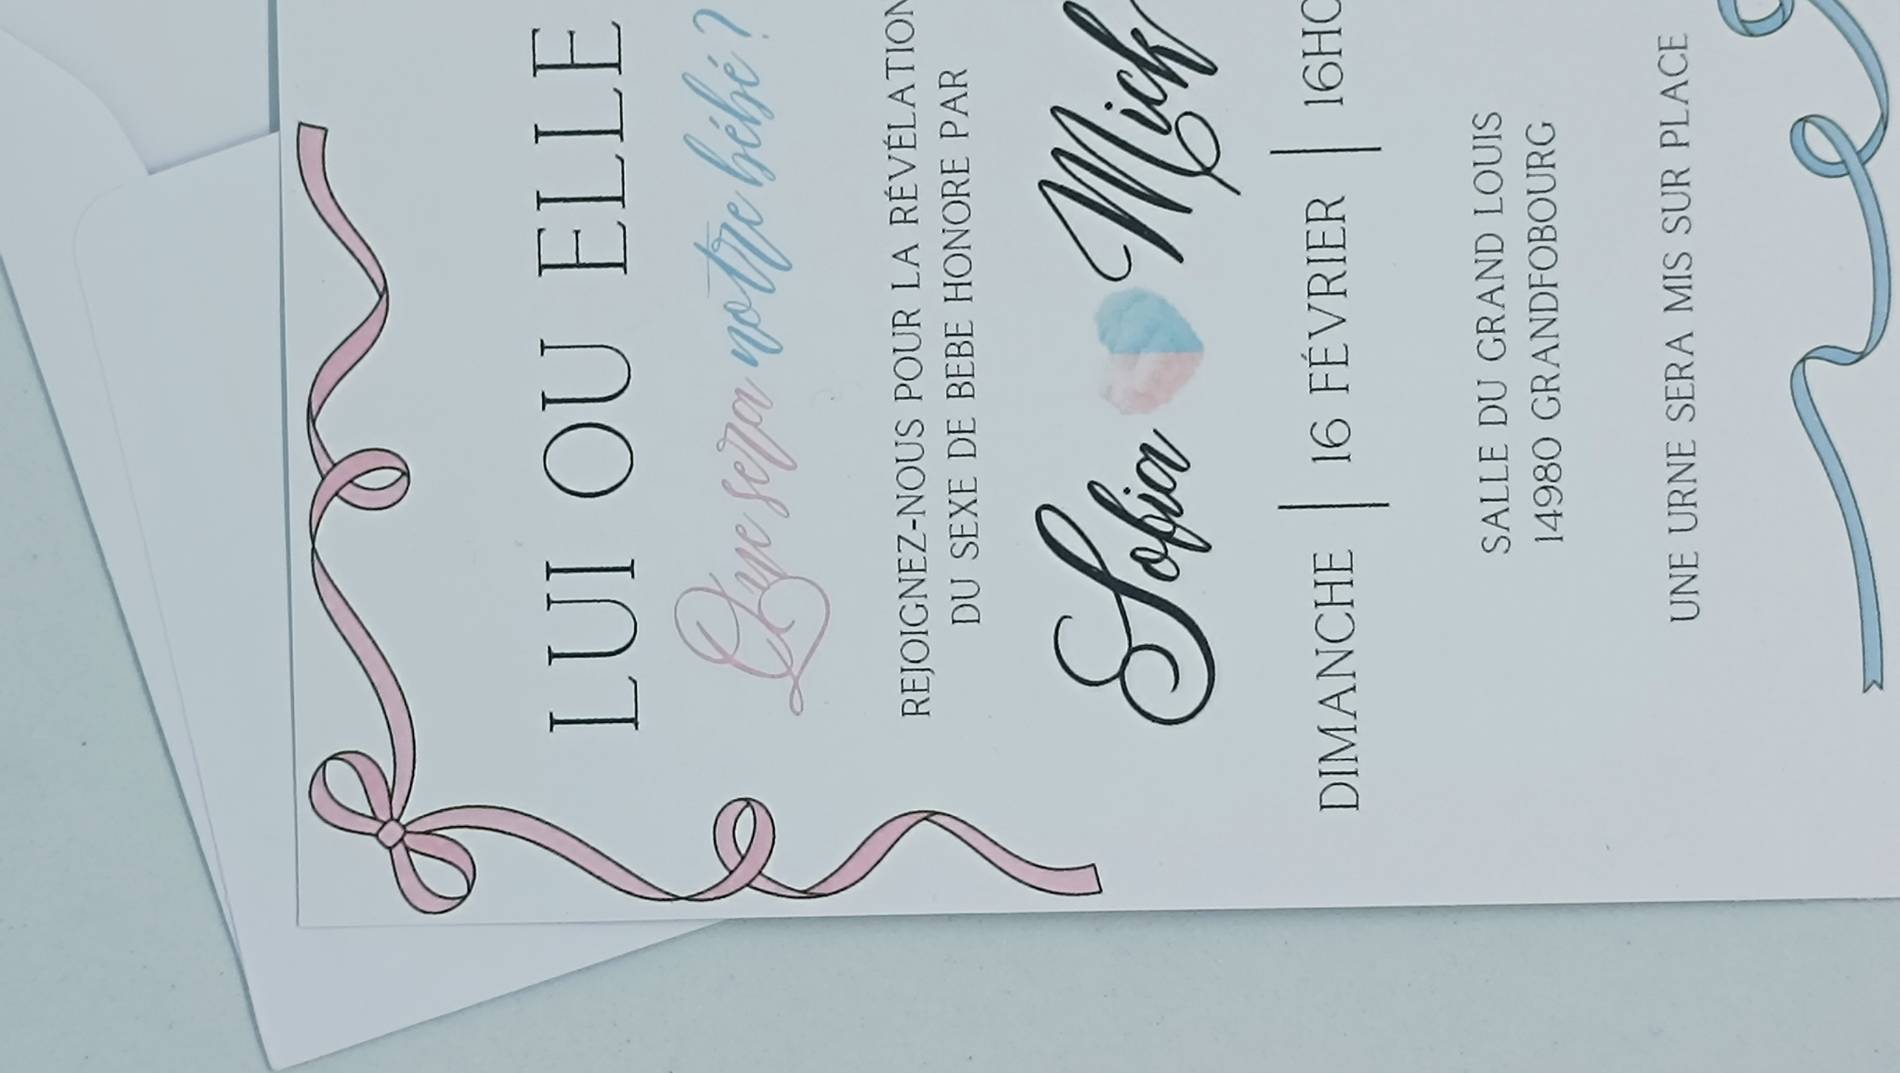 LUI OU ELLE
Que sera notre bébé ?
REJOIGNEZ-NOUS POUR LA RÉVÉLATION
DU SEXE DE BEBE HONORE PAR
Sofia Mick
DIMANCHE | 16 FÉVRIER | 16H0
SALLE DU GRAND LOUIS
14980 GRANDFOBOURG
UNE URNE SERA MIS SUR PLACE